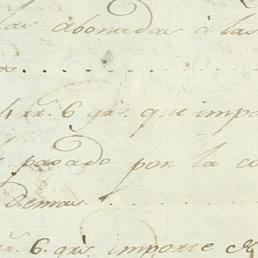 las abonadas à las
. . . . . . . . . . . .
6. grs. que impo
pagado por la co
demas . . . . . . .
6. grs. importe